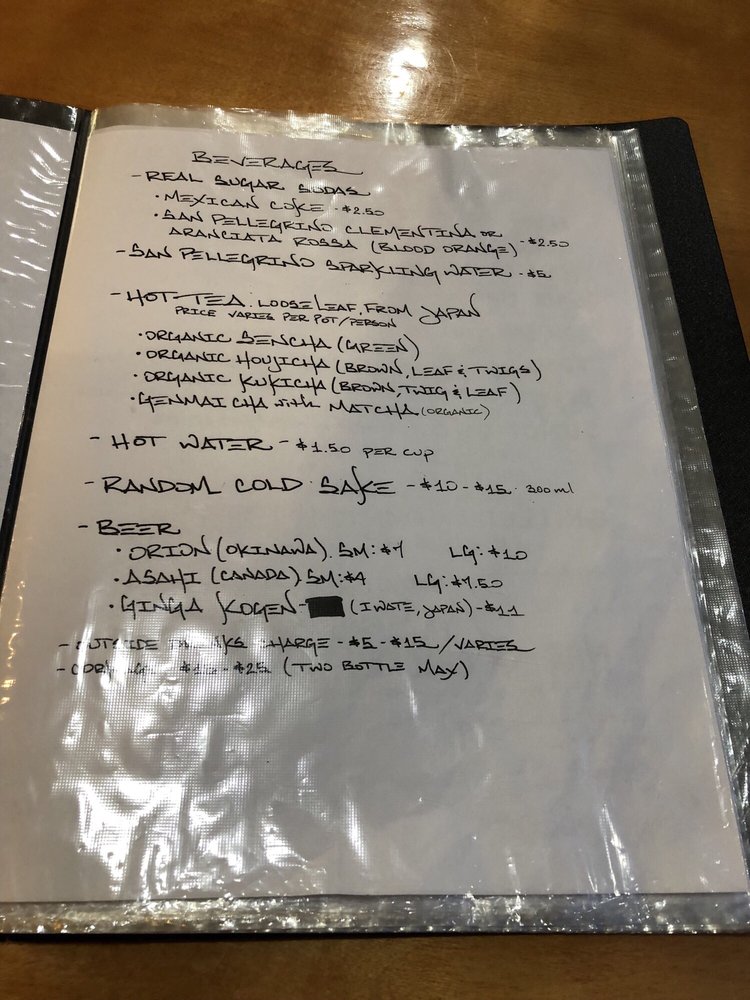 BEVERAGES
- REAL SUGAR SODAS
• MEXICAN COKE - $2.50
• SAN PELLEGRINO CLEMENTINA OR
ARANCIATA ROSSA (BLOOD ORANGE) - $2.50
- SAN PELLEGRINO SPARKLING WATER - $5
- HOT TEA. LOOSE LEAF, FROM JAPAN
PRICE VARIES PER POT/PERSON
• ORGANIC SENCHA (GREEN)
• ORGANIC HOUJICHA (BROWN, LEAF & TWIGS)
• ORGANIC KUKICHA (BROWN, TWIG & LEAF)
• GENMAI CHA with MATCHA (ORGANIC)
- HOT WATER - $1.50 PER CUP
- RANDOM COLD SAKE - $10 - $15 300 ml
- BEER
• ORION (OKINAWA). SM: $7 LG: $10
• ASAHI (CANADA). SM: $4 LG: $7.50
• GINGA KOGEN - (IWATE, JAPAN) - $11
- OUTSIDE DRINKS CHARGE - $5 - $15 / VARIES
- $25 (TWO BOTTLE MAX)